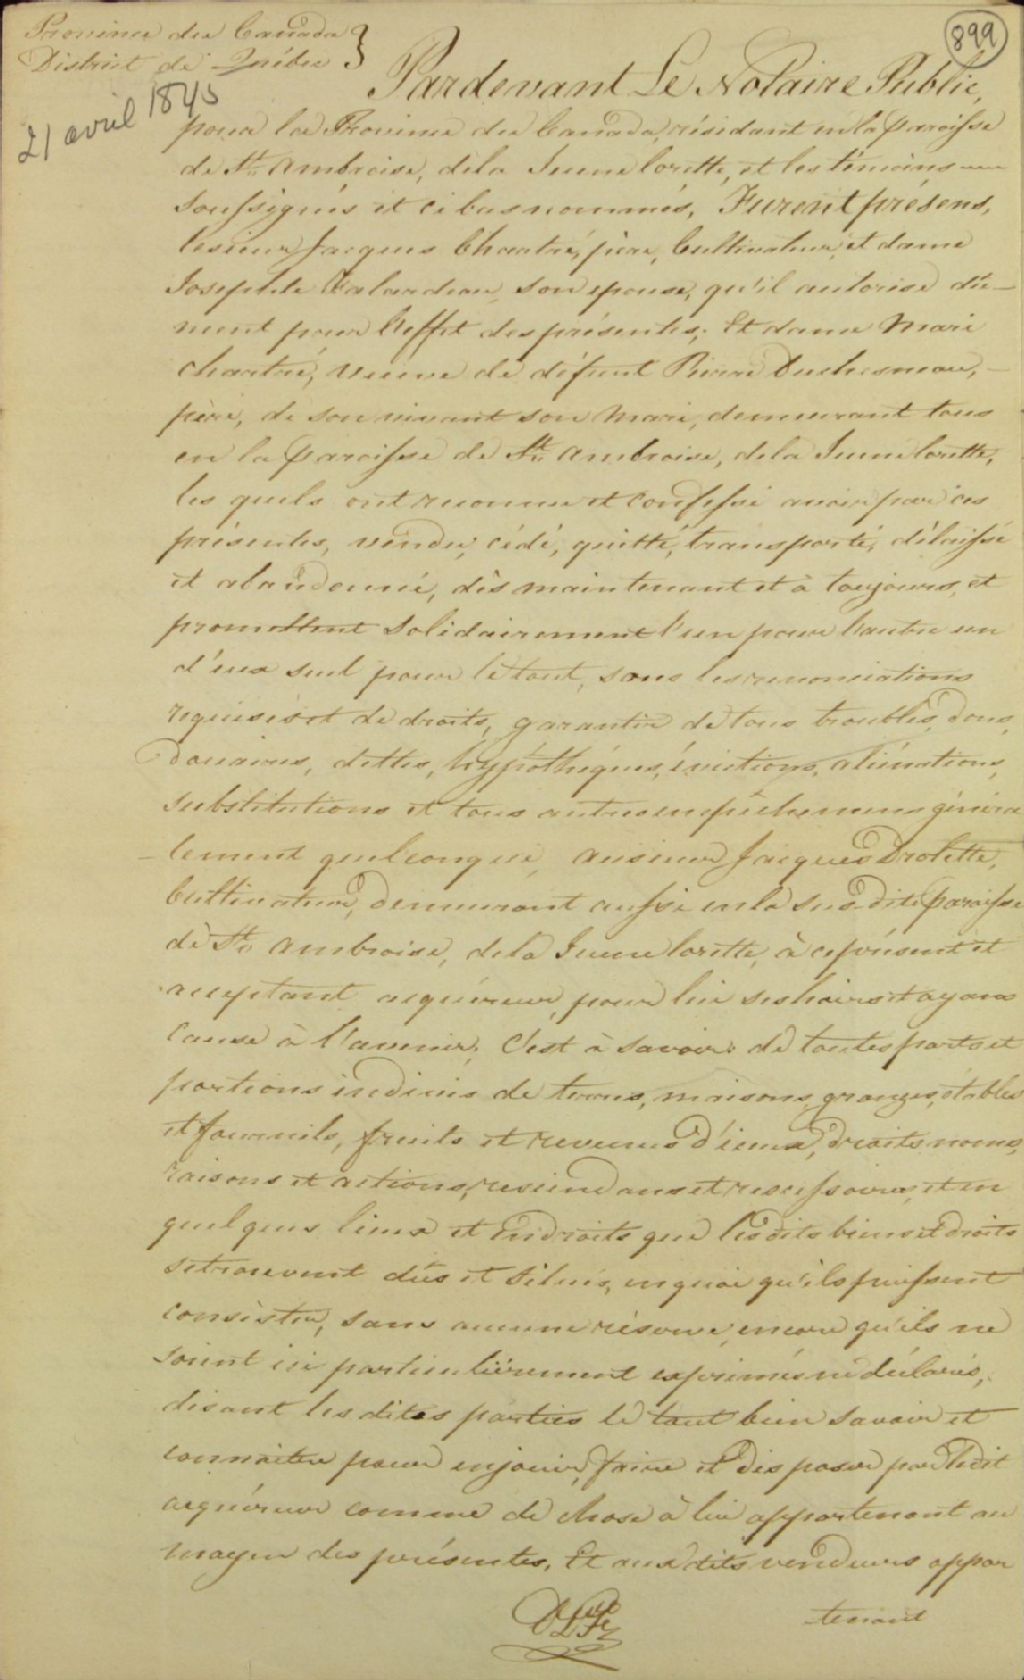 Province du Canada }
District de Québec
899
21 avril 1845
Pardevant Le Notaire Public,
pour la Province du Canada, résidant en la Paroisse
de St. Ambroise, de la Jeune lorette, et les témoins
Soussignés et ci bas nommés, Furent présens,
le sieur Jacques Chartré, père, Cultivateur, et dame
Josephte son epouse, qu'il autorise dû-
ment pour l'effet des présentes; Et dame Marie
Chartré, veuve de défunt Pierre Duchesneau,
père, de son vivant son mari, demeurant tous
en la Paroisse de St. Ambroise, de la Jeune lorette,
les quels ont reconnu et confessé avoir par ces
présentes, vendu, cédé, quitté, transporté, délaissé
et abandonné, dès maintenant et à toujours, et
promettent Solidairement l'un pour l'autre un
d'eux seul pour le tout, sous les renonciations
requises et de droits, garantir de tous troubles, dons,
Douaires, dettes, hyppothéques, évictions, aliénations,
substitutions et tous autres empêchemens généra
-lement quelconque, au sieur Jacques Drolette,
Cultivateur, Demeurant aussi en la Sus-dite Paroisse
de St. Ambroise, de la Jeune lorette, à ce présent et
acceptant acquéreur, pour lui ses hoirs et ayans
cause à l'avenir, C'est à Savoir: de toutes parts et
portions indivis de terres, maisons, granges, étables
et fournils, fruits et revenus d'iceux, droits, noms,
raisons et actions, rescindans et rescissoires, et en
quelques lieux et endroits que lesdits biens et droits
se trouvent dûs et situés, en quoi qu'ils puissent
consister, sans aucune réserve, encore qu'ils ne
soient ici particulièrement exprimés ni déclarés,
disant les dites parties le tout bien savoir et
connaitre pour en jouir, faire et disposer par ledit
acquéreur comme de chose à lui appartenant au
moyen des présentes, Et aux dits vendeurs appar
tenant